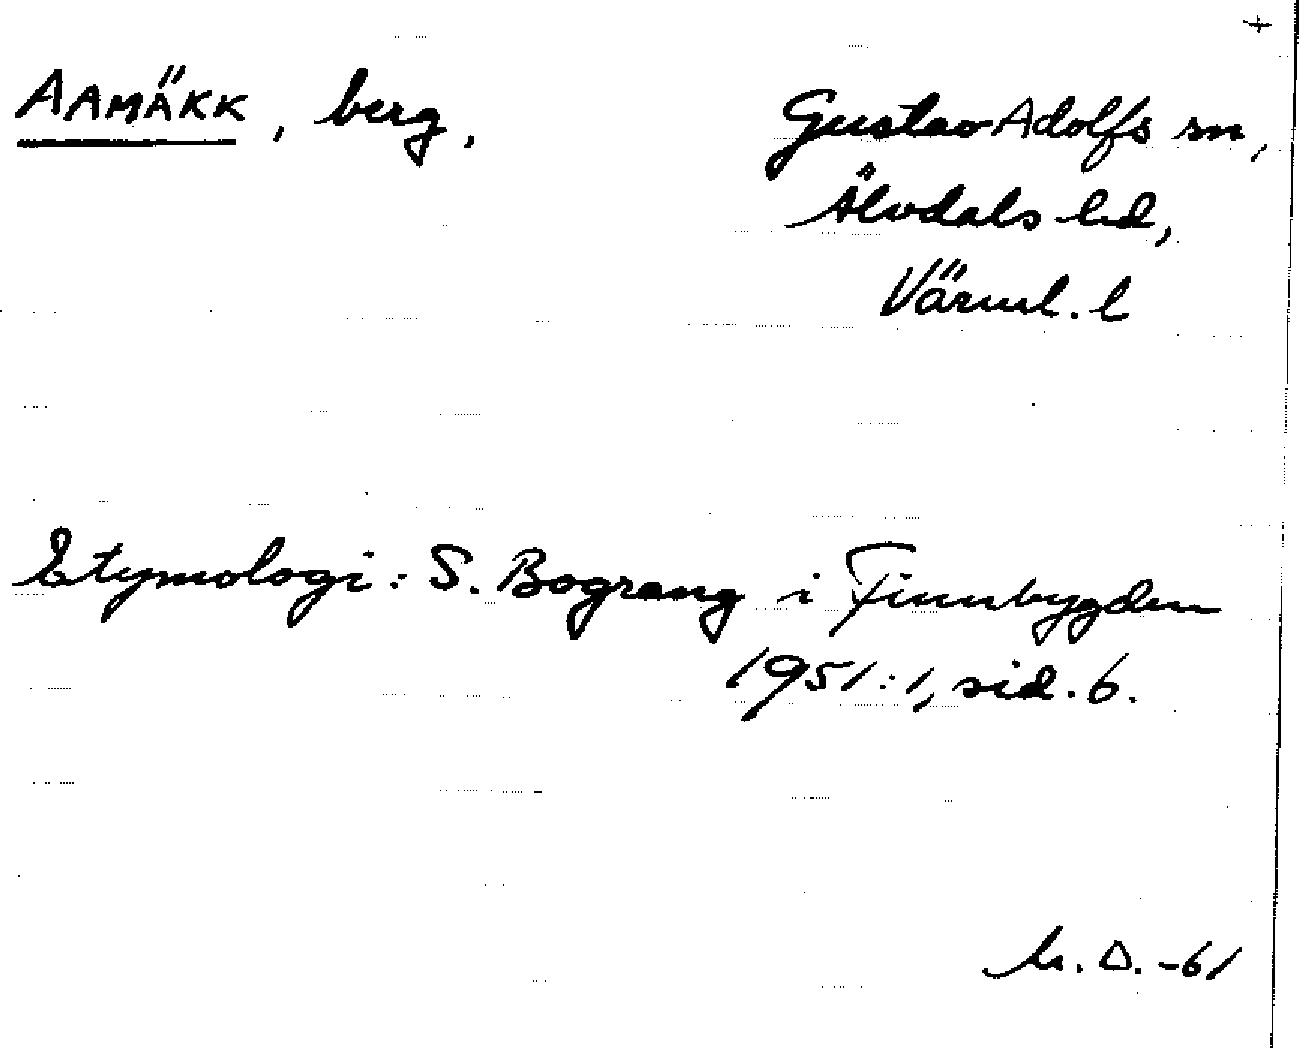 +
AAMÄKK, berg, Gustav Adolfs sn,
Älvdals hd,
Värml. l
Etymologi: S. Bograng i Finnbygden
1951:1, sid. 6.
D. -61